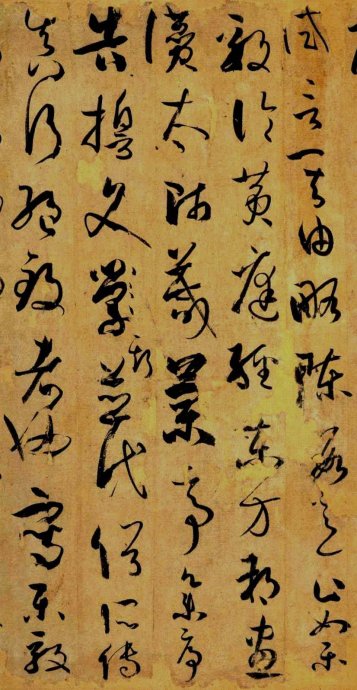 試言其由略陳數意止如樂
毅論黃庭經東方朔畫
讚太師箴蘭亭集序
告誓文斯並代俗所傳
真行絕致者也寫樂毅